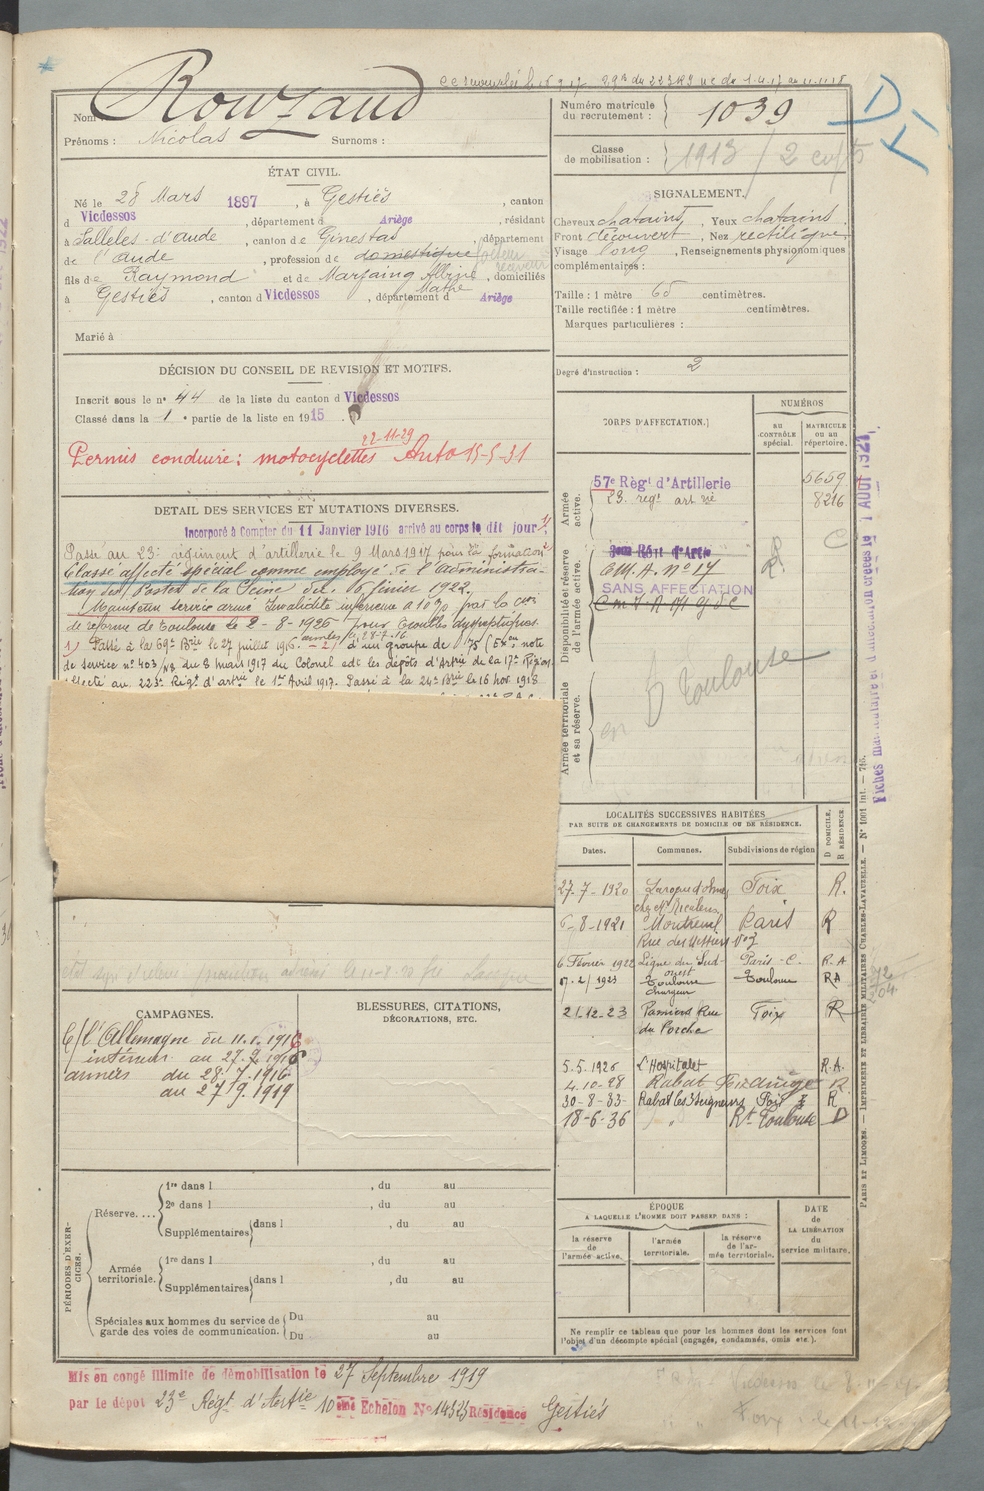 Nom : Rouzaud
Prénoms : Nicolas Surnoms :
Numéro matricule du recrutement : 1039
Classe de mobilisation : 1913 / 2
ÉTAT CIVIL.
Né le 28 Mars 1897, à Gestiès, canton
d Vicdessos, département d Ariège, résidant
à Salleles-d'aude, canton de Ginestas, département
de l'aude, profession de domestique facteur receveur
fils de Raymond et de Marfaing Albine Mathe, domiciliés
à Gestiès, canton d Vicdessos, département d Ariège
Marié à
SIGNALEMENT.
Cheveux chatains, Yeux chatains
Front découvert, Nez rectiligne
Visage long, Renseignements physionomiques
complémentaires :
Taille : 1 mètre 65 centimètres.
Taille rectifiée : 1 mètre centimètres.
Marques particulières :
Degré d'instruction : 2
DÉCISION DU CONSEIL DE REVISION ET MOTIFS.
Inscrit sous le n° 44 de la liste du canton d Vicdessos
Classé dans la 1e partie de la liste en 1915.
22-11-29
Permis conduire : motocyclettes Auto 15-5-31
DETAIL DES SERVICES ET MUTATIONS DIVERSES.
Incorporé à Compter du 11 Janvier 1916 arrivé au corps le dit jour 1)
Passé au 23e régiment d'artillerie le 9 Mars 1917 pour la formation
Classé affecté spécial comme employé de l'administra-
tion des Postes de la Seine du 6 février 1922.
Maintenu service armé Invalidité inférieure à 10% par la Con
de réforme de Toulouse le 2-8-1926 pour troubles dyspeptiques.
1) Passé à la 69e Brie le 27 juillet 1916. armées le 28-7-16
2) d'un groupe de 75 (Exon note
de service n° 403/ du 8 mars 1917 du Colonel edt les dépôts d'Artie de la 17e Région
affecté au 223e Régt d'artie le 1er Avril 1917. Passé à la 24e Brie le 16 nov. 1918
CORPS D'AFFECTATION.
NUMÉROS
AU CONTRÔLE spécial.
MATRICULE ou au répertoire.
Armée active.
57e Règt d'Artillerie 5659
23. regt art 8216
Disponibilité et réserve de l'armée active.
C.M.A. N° 17
SANS AFFECTATION
Armée territoriale et sa réserve.
D Toulouse
Fiches matriculaire et d'affectation créées le 1 AOUT 1921
LOCALITÉS SUCCESSIVES HABITÉES
PAR SUITE DE CHANGEMENTS DE DOMICILE OU DE RÉSIDENCE.
Dates. Communes. Subdivisions de région D DOMICILE. R RÉSIDENCE.
27-7-1920 Laroque d'olmes Foix R.
6-8-1921 Montreuil Paris R
Rue des N° 7
6 Février 1922 Ligne du Sud-ouest Paris-C. R.A
17.2/1923 Toulouse chargeur Toulouse RA
21.12.23 Pamiers Rue du Porche Foix R
5.5.1926 L'Hospitalet R.A.
4.10-28 Rabat R
30-8-33 Rabat les 3 Seigneurs Foix R
18-6-36 " Rt Toulouse D
CAMPAGNES.
C/ l'Allemagne du 11.1.1916
intérieur au 27.7.1916
armées du 28.7.1916
au 27.9.1919
BLESSURES, CITATIONS,
DÉCORATIONS, ETC.
PÉRIODES D'EXERCICES.
Réserve....
1re dans l , du au
2e dans l , du au
Supplémentaires dans l , du au
Armée territoriale.
1re dans l , du au
Supplémentaires dans l , du au
Spéciales aux hommes du service de garde des voies de communication.
Du au
Du au
ÉPOQUE
A LAQUELLE L'HOMME DOIT PASSER DANS :
la réserve de l'armée active.
l'armée territoriale.
la réserve de l'armée territoriale.
DATE de LA LIBÉRATION du service militaire.
Ne remplir ce tableau que pour les hommes dont les services font
l'objet d'un décompte spécial (engagés, condamnés, omis etc.).
PARIS ET LIMOGES. — IMPRIMERIE ET LIBRAIRIE MILITAIRES CHARLES-LAVAUZELLE. — N° 1001 int. — 7/15.
Mis en congé illimité de démobilisation le 27 Septembre 1919
par le dépot 23e Régt d'Artie 10 eme Echelon No 14323 Résidence Gestiès